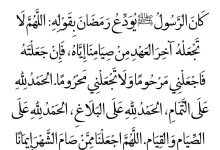 كَانَ الرَّسُولُ ﷺ يُوَدِّعُ رَمَضَانَ بِقَوْلِهِ: اللَّهُمَّ لَا
تَجْعَلْهُ آخِرَ العَهْدِ مِنْ صِيَامِنَا إِيَّاهُ، فَإِنْ جَعَلْتَهُ
فَاجْعَلْنِي مَرْحُومًا وَلَا تَجْعَلْنِي مَحْرُومًا. الحَمْدُ لِلَّهِ
عَلَى التَّمَامِ، الحَمْدُ لِلَّهِ عَلَى البَلَاغِ، الحَمْدُ لِلَّهِ عَلَى
الصِّيَامِ وَالقِيَامِ. اللَّهُمَّ اجْعَلْنَا مِمَّنْ صَامَ الشَّهْرَ إِيمَانًا